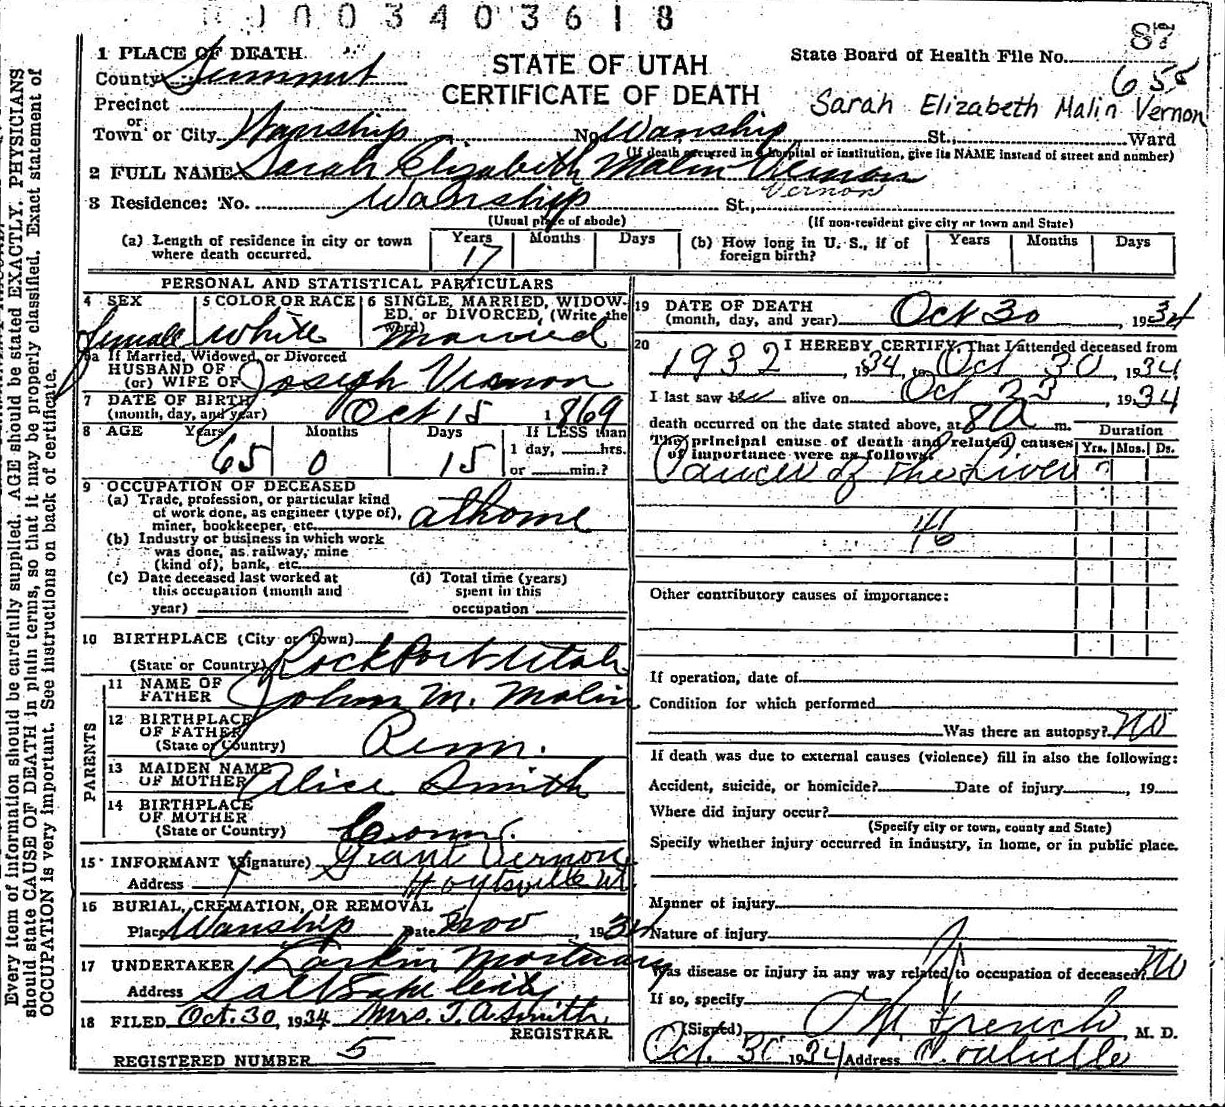 0003403618
87
655
1 PLACE OF DEATH
County Summit
Precinct
or
Town or City Wanship No. Wanship St., Ward
STATE OF UTAH
CERTIFICATE OF DEATH
State Board of Health File No.
Sarah Elizabeth Malin Vernon
(If death occurred in a hospital or institution, give its NAME instead of street and number)
2 FULL NAME Sarah Elizabeth Malin Vernon
Vernon
3 Residence: No. Wanship St.,
(Usual place of abode) (If non-resident give city or town and State)
(a) Length of residence in city or town where death occurred. Years 17 Months Days
(b) How long in U. S., if of foreign birth? Years Months Days
PERSONAL AND STATISTICAL PARTICULARS
4 SEX female
5 COLOR OR RACE white
6 SINGLE, MARRIED, WIDOWED, or DIVORCED, (Write the word) married
5a If Married, Widowed, or Divorced
HUSBAND OF
(or) WIFE OF Joseph Vernon
7 DATE OF BIRTH
(month, day, and year) Oct 15 1869
8 AGE Years 65 Months 0 Days 15 If LESS than
1 day, hrs.
or min.?
9 OCCUPATION OF DECEASED
(a) Trade, profession, or particular kind
of work done, as engineer (type of),
miner, bookkeeper, etc. at home
(b) Industry or business in which work
was done, as railway, mine
(kind of), bank, etc.
(c) Date deceased last worked at
this occupation (month and
year)
(d) Total time (years)
spent in this
occupation
10 BIRTHPLACE (City or Town)
(State or Country) Rockport Utah
PARENTS
11 NAME OF
FATHER John M. Malin
12 BIRTHPLACE
OF FATHER
(State or Country) Penn.
13 MAIDEN NAME
OF MOTHER Alice Smith
14 BIRTHPLACE
OF MOTHER
(State or Country) Conn.
15 INFORMANT (Signature) Grant Vernon
Address Hoytsville Ut.
16 BURIAL, CREMATION, OR REMOVAL
Place Wanship Date Nov , 1934
17 UNDERTAKER Larkin Mortuary
Address Salt Lake City
18 FILED Oct. 30, 1934 Mrs. T. A. Smith,
REGISTRAR
REGISTERED NUMBER 5
19 DATE OF DEATH
(month, day, and year) Oct 30 , 1934
20 I HEREBY CERTIFY, That I attended deceased from
1932 , 1934, to Oct 30 , 1934
I last saw her alive on Oct 23 , 1934
death occurred on the date stated above, at 8 a m.
The principal cause of death and related causes
of importance were as follows:
Duration
Yrs. Mos. Ds.
Cancer of the Liver ?
46
Other contributory causes of importance:
If operation, date of
Condition for which performed
Was there an autopsy? No
If death was due to external causes (violence) fill in also the following:
Accident, suicide, or homicide? Date of injury , 19
Where did injury occur?
(Specify city or town, county and State)
Specify whether injury occurred in industry, in home, or in public place.
Manner of injury
Nature of injury
Was disease or injury in any way related to occupation of deceased? No
If so, specify
(Signed) French M. D.
Oct. 30 1934 Address Coalville
Every item of information should be carefully supplied. AGE should be stated EXACTLY. PHYSICIANS
should state CAUSE OF DEATH in plain terms, so that it may be properly classified. Exact statement of
OCCUPATION is very important. See instructions on back of certificate.